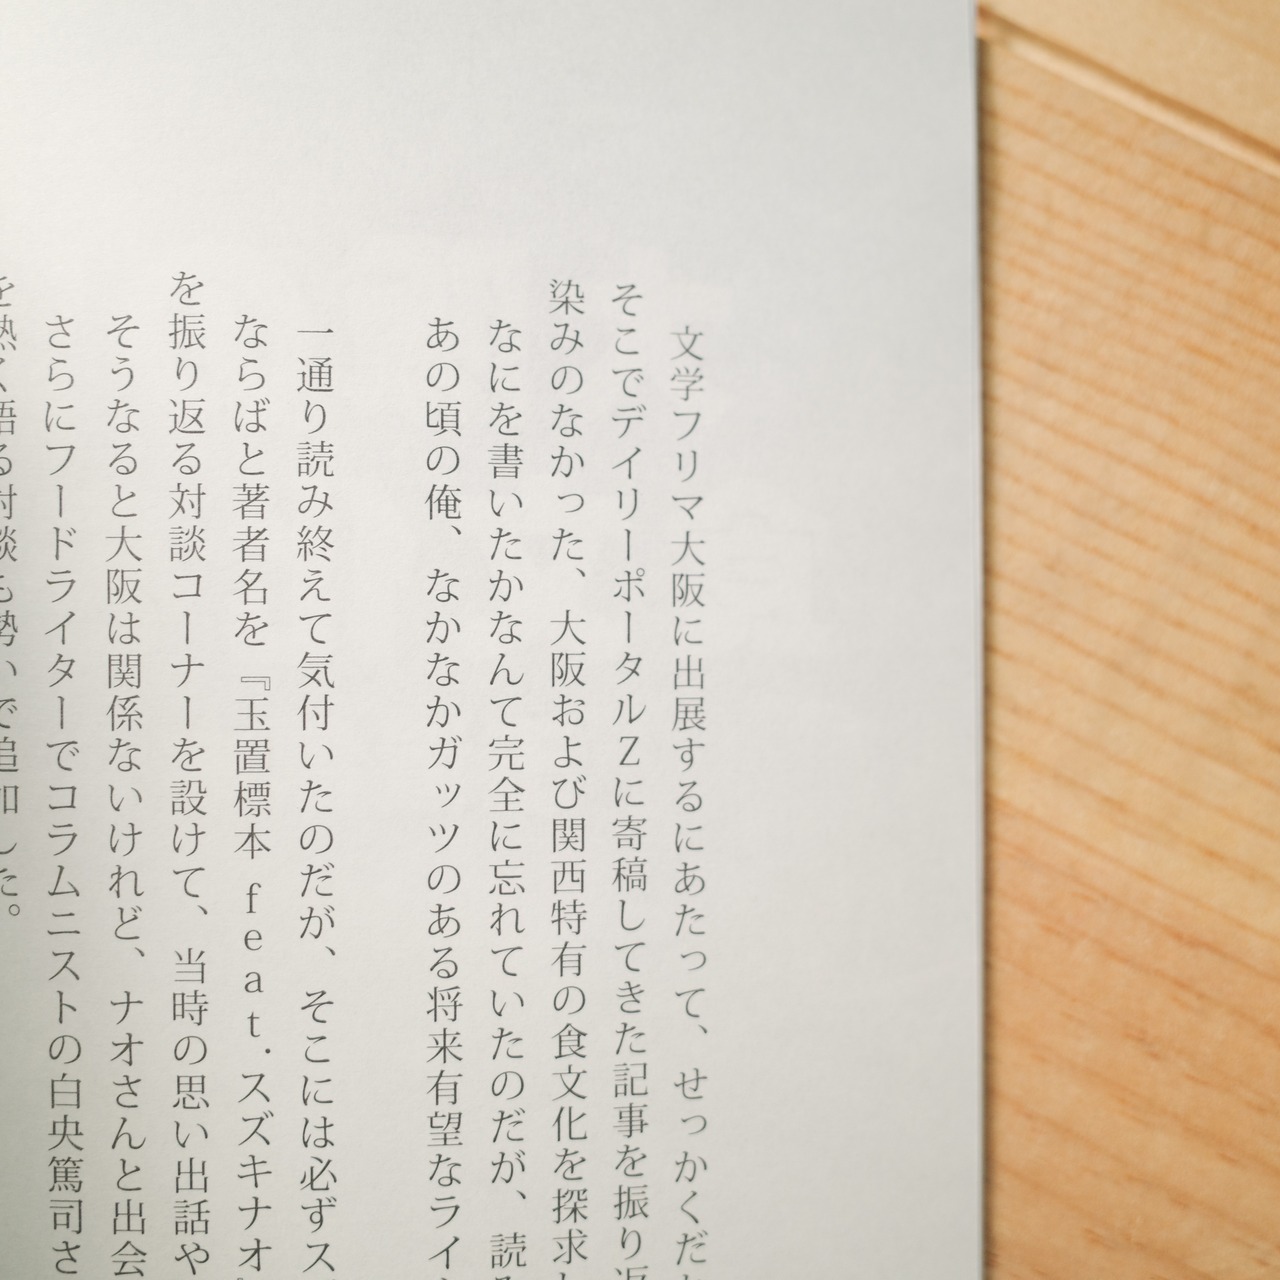 文学フリマ大阪に出展するにあたって、せっかくだ
そこでデイリーポータルZに寄稿してきた記事を振り返
染みのなかった、大阪および関西特有の食文化を探求
なにを書いたかなんて完全に忘れていたのだが、読
あの頃の俺、なかなかガッツのある将来有望なライ
一通り読み終えて気付いたのだが、そこには必ずス
ならばと著者名を『玉置標本 feat.スズキナオ
を振り返る対談コーナーを設けて、当時の思い出話や
そうなると大阪は関係ないけれど、ナオさんと出会
さらにフードライターでコラムニストの白央篤司さ
を熱く語る対談も勢いで追加した。